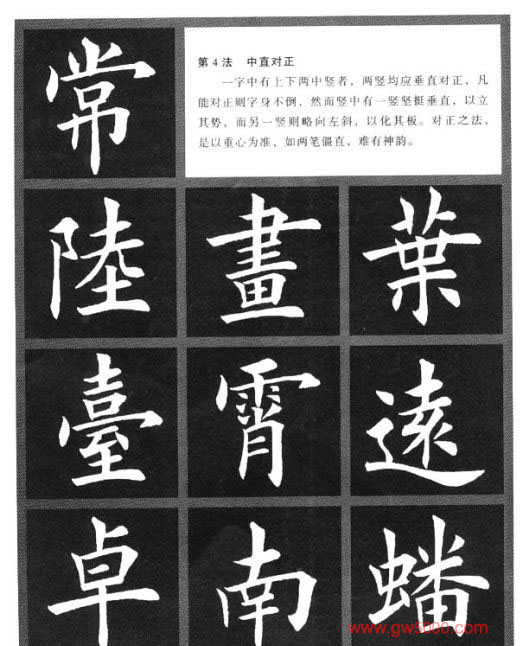 常
第 4 法 中直对正
一字中有上下两中竖者，两竖均应垂直对正，凡
能对正则字身不倒，然而竖中有一竖坚挺垂直，以立
其势，而另一竖则略向左斜，以化其板。对正之法，
是以重心为准，如两笔僵直，难有神韵。
陸 畫 葉
臺 霄 遠
卓 南 蟠
www.gw5000.com